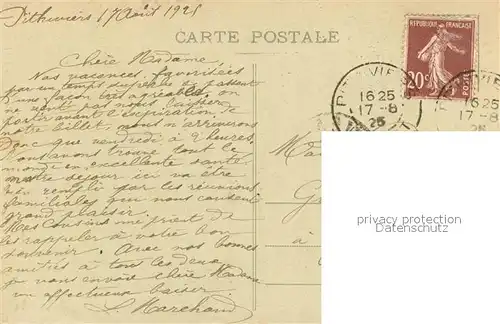 Pithiviers 17 Août 1925
CARTE POSTALE
REPUBLIQUE FRANÇAISE
20c
POSTES
PITHIVIERS
16 25
17-8
25
16 25
17-8
25
Chère Madame,
Nos vacances favorisées
par un temps superbe se passent
d'une façon très agréable, on
ne veut pas nous laisser
partir avant l'expiration de
notre billet, nous n'arriverons
donc que vendredi à 9 heures.
Nous avons trouvé tout le
monde en excellente santé
notre séjour ici va être
bien rempli par les réunions
familiales qui nous causent
grand plaisir.
Mes Cousins me prient de
les rappeler à votre bon
souvenir. Avec nos bonnes
amitiés à tous les deux
je vous envoie chère Madame
un affectueux baiser.
L. Marchand
privacy protection
Datenschutz